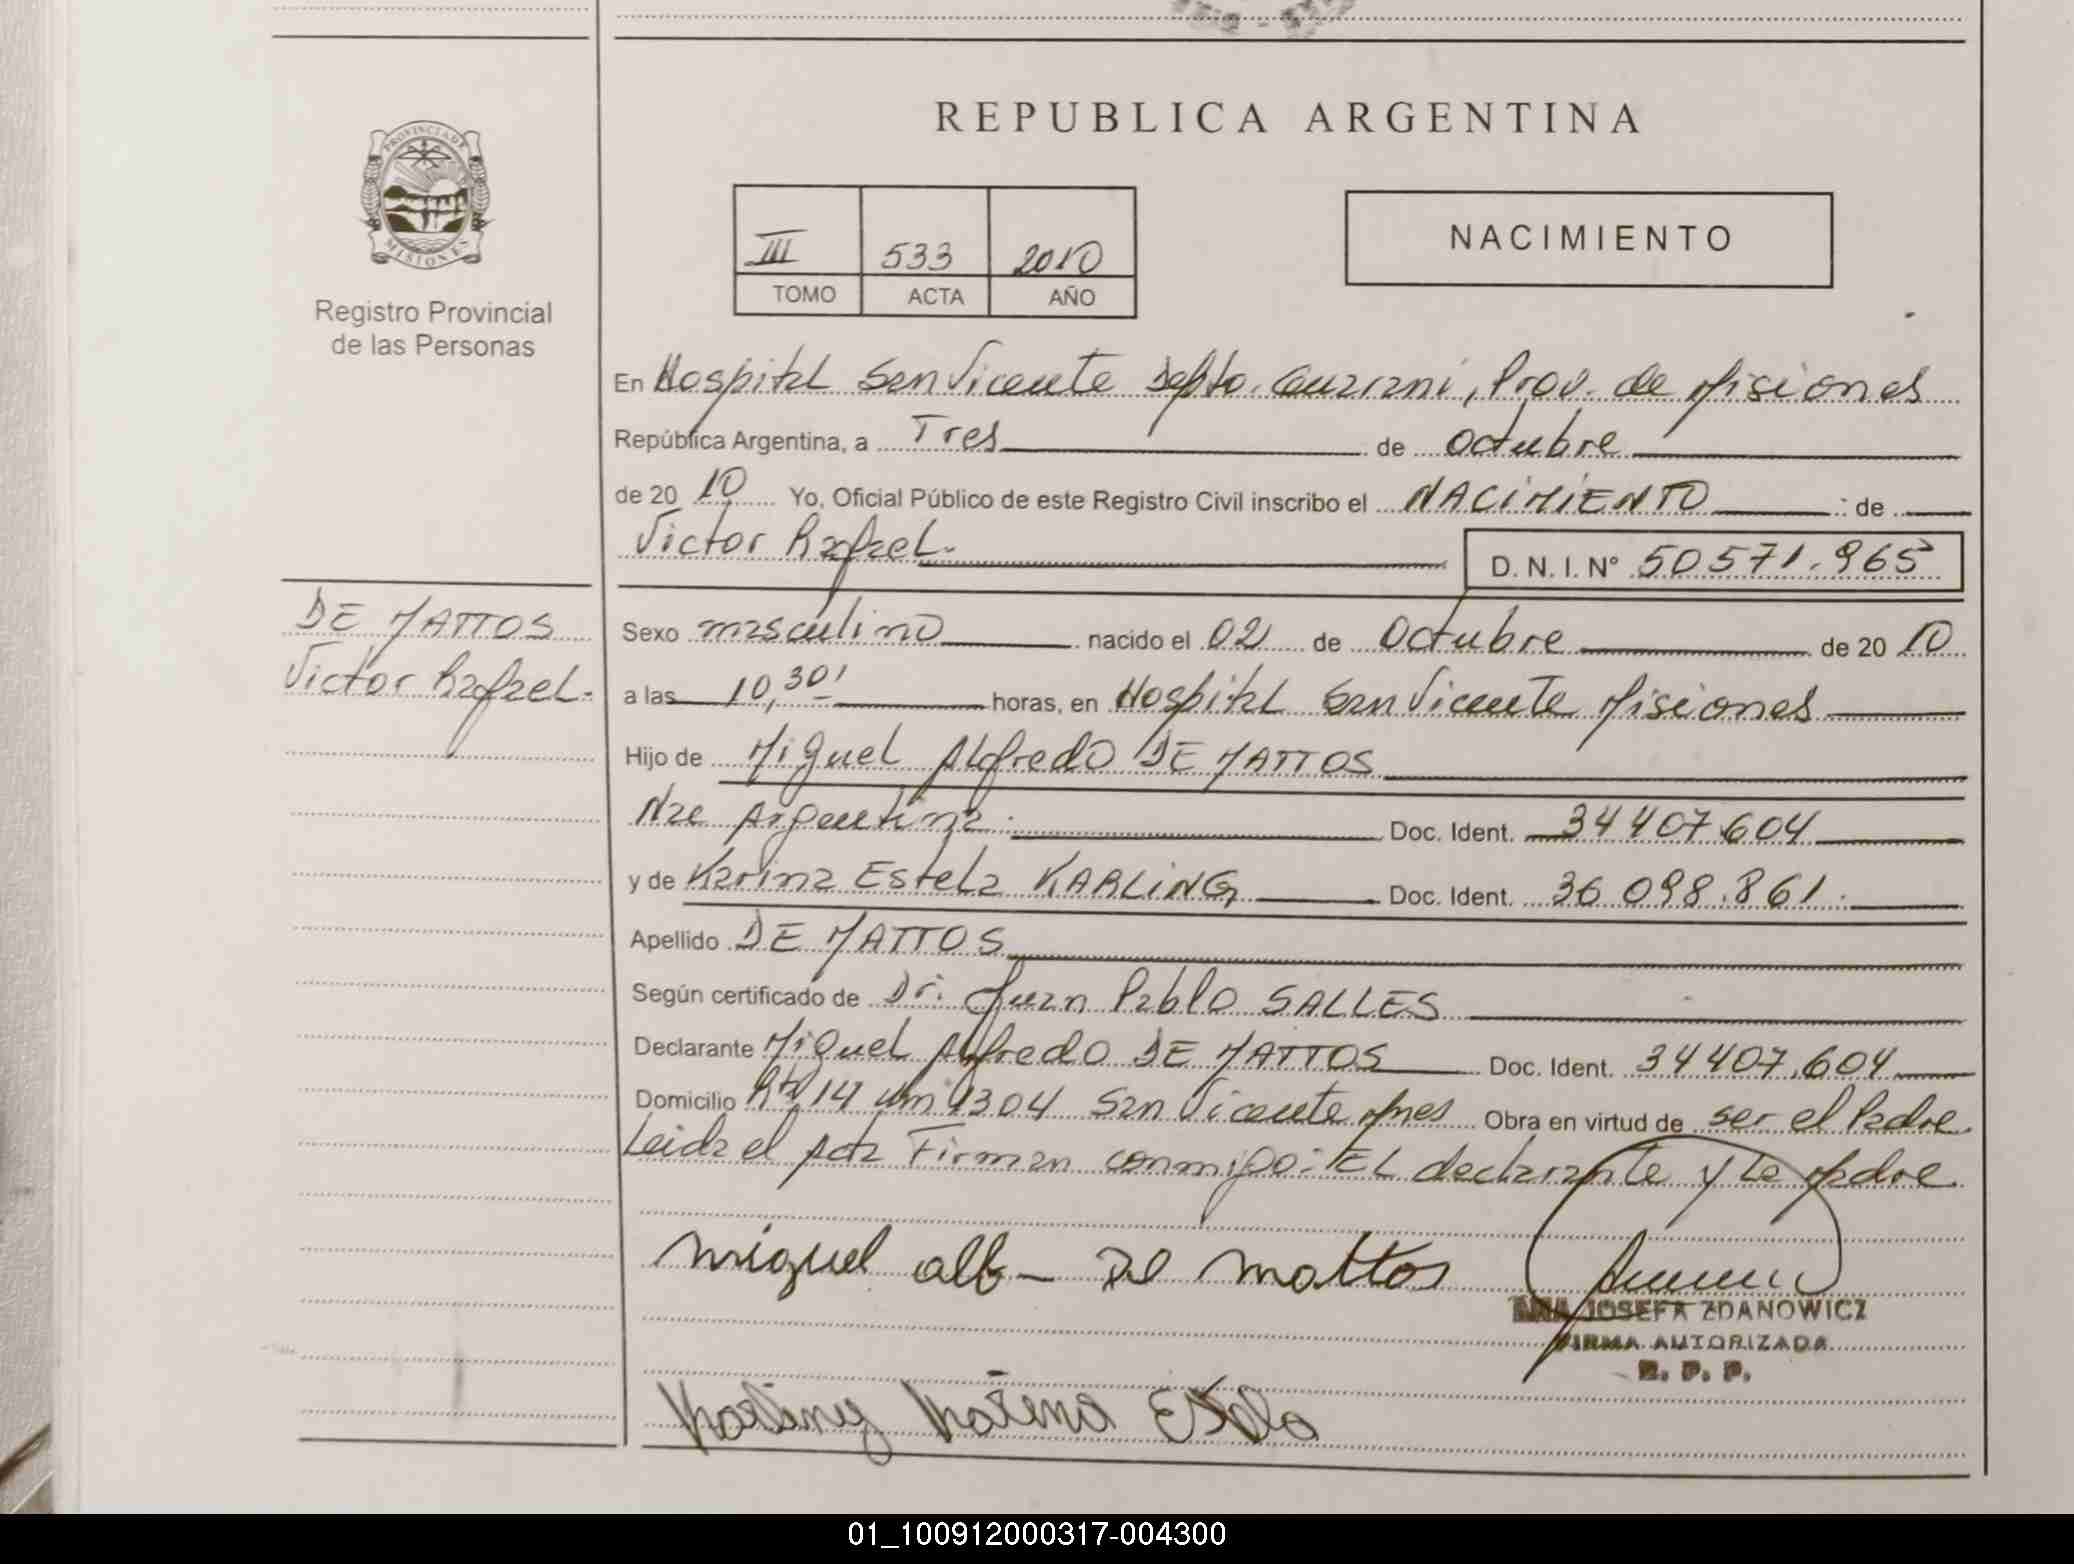 REPUBLICA ARGENTINA
PROVINCIA DE
MISIONES
Registro Provincial
de las Personas
III 533 2010
TOMO ACTA AÑO
NACIMIENTO
En Hospital San Vicente Depto. Guarani, Prov. de Misiones
República Argentina, a Tres de octubre
de 20 10 Yo, Oficial Público de este Registro Civil inscribo el NACIMIENTO de
Victor Rafael. D. N. I. Nº 50571.965
DE MATTOS
Victor Rafael.
Sexo masculino nacido el 02 de Octubre de 20 10
a las 10,30' horas, en Hospital San Vicente Misiones
Hijo de Miguel Alfredo DE MATTOS
Nac Argentina. Doc. Ident. 34407.604
y de Karina Estela KARLING, Doc. Ident. 36.098.861.
Apellido DE MATTOS
Según certificado de Dr. Juan Pablo SALLES
Declarante Miguel Alfredo DE MATTOS Doc. Ident. 34407.604
Domicilio Rta 14 Km 1304 San Vicente Mnes Obra en virtud de ser el Padre.
Leida el Acta Firman conmigo: EL declarante y La Madre.
miguel alf De mattos
ANA JOSEFA ZDANOWICZ
FIRMA AUTORIZADA
R. P. P.
Karling Karina
01_100912000317-004300